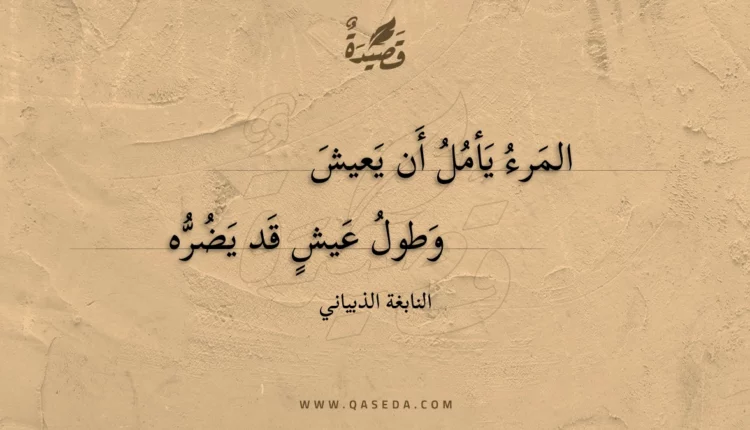 قَصِيْدَةٌ
المَرءُ يَأمُلُ أَن يَعيشَ
وَطولُ عَيشٍ قَد يَضُرُّه
النابغة الذبياني
WWW.QASEDA.COM